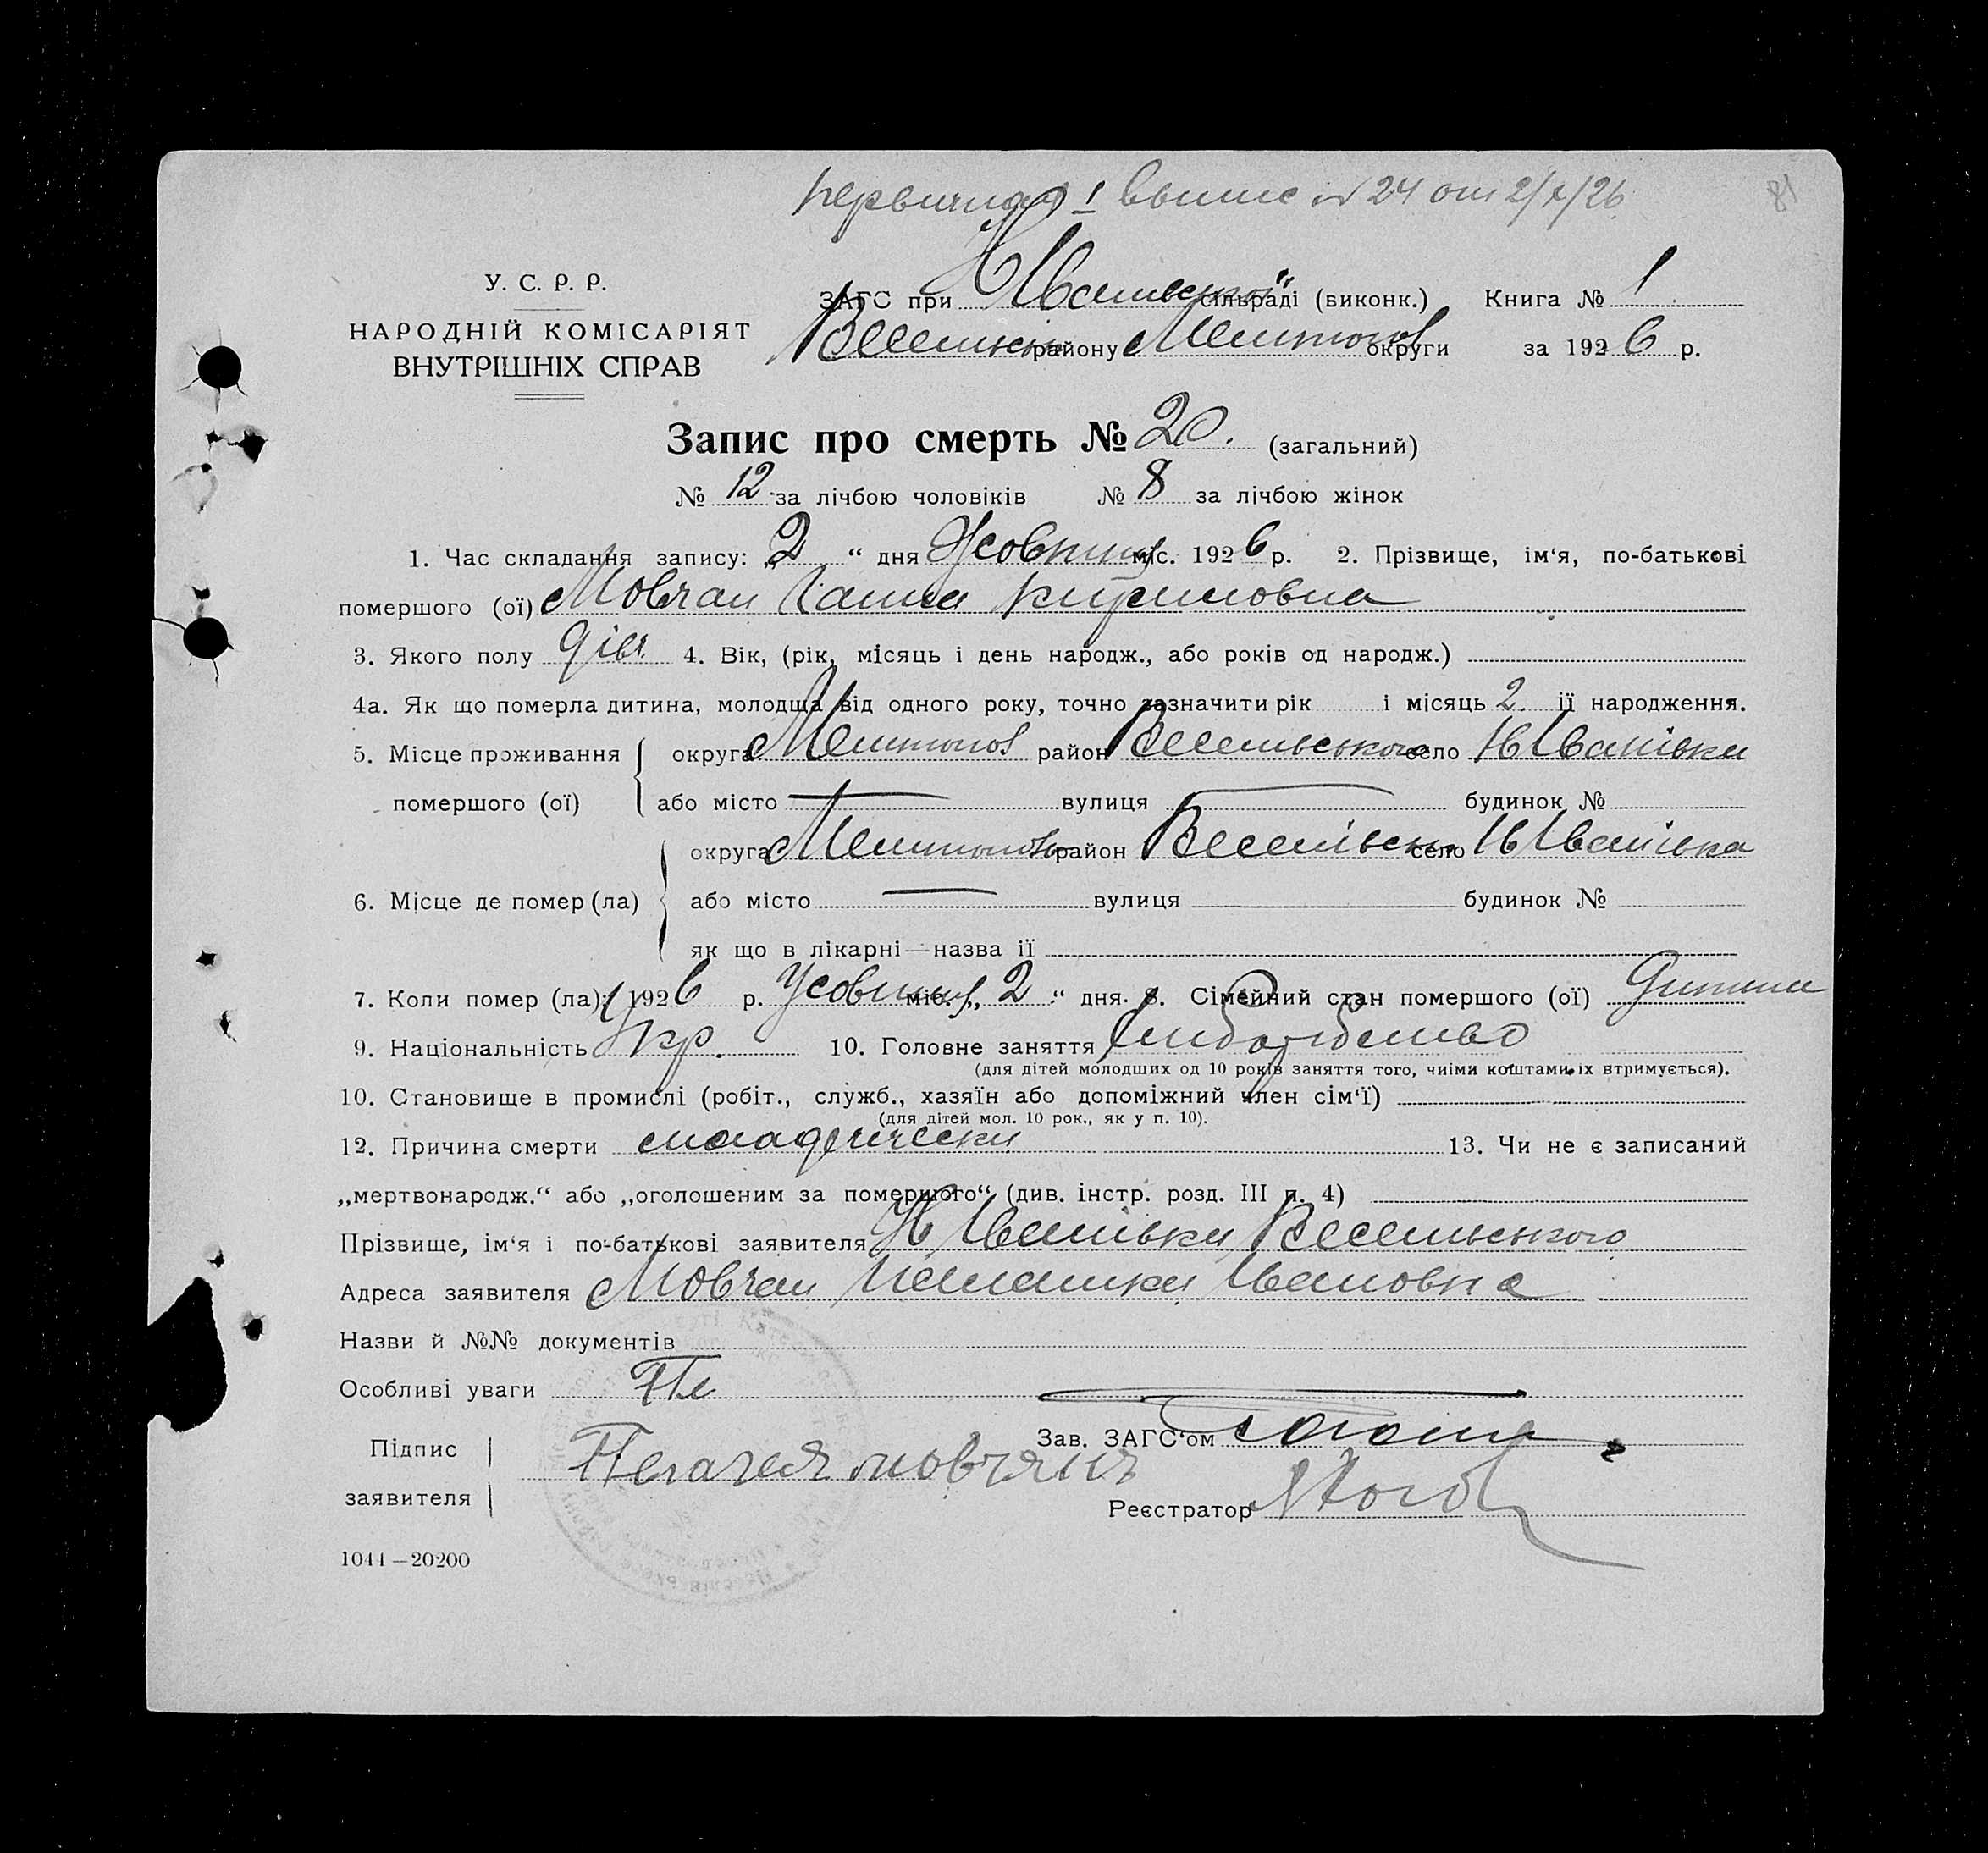 первичная 1 выпис № 24 от 2/X/26
81
У. С. Р. Р.
НАРОДНІЙ КОМІСАРІЯТ
ВНУТРІШНІХ СПРАВ
ЗАГС при Н Іванівської сільраді (виконк.) Книга № 1
району Мелитопол округи за 1926 р.
Запис про смерть № 20. (загальний)
№ 12 за лічбою чоловіків № 8 за лічбою жінок
1. Час складання запису: „2“ дня Жовтня міс. 1926 р. 2. Прізвище, ім‘я, по-батькові
помершого (ої) Мовчан Ганна
3. Якого полу дівч. 4. Вік, (рік, місяць і день народж., або років од народж.)
4а. Як що померла дитина, молодща від одного року, точно зазначити рік і місяць 2. ії народження.
5. Місце проживання помершого (ої) округа Мелитопол район Веселівського село Н Іванівка
або місто — вулиця — будинок №
6. Місце де помер (ла) округа Мелитополь район Веселівськ село Н Іванівка
або місто — вулиця будинок №
як що в лікарні—назва ії
7. Коли помер (ла): 1926 р. Жовтня міс. „2“ дня. 8. Сімейний стан помершого (ої) Дитина
9. Національність Укр. 10. Головне заняття хліборобство
(для дітей молодших од 10 років заняття того, чиїми коштами їх втримується).
10. Становище в промислі (робіт., служб., хазяїн або допоміжний член сім‘ї)
(для дітей мол. 10 рок., як у п. 10).
12. Причина смерти 13. Чи не є записаний
„мертвонародж.“ або „оголошеним за помершого“ (див. інстр. розд. III п. 4)
Прізвище, ім‘я і по-батькові заявителя Н Іванівка Веселівського
Адреса заявителя Мовчан Івановна
Назви й №№ документів
Особливі уваги
Підпис заявителя Пелагея мовчяня
Зав. ЗАГС‘ом
Реєстратор
1044—20200